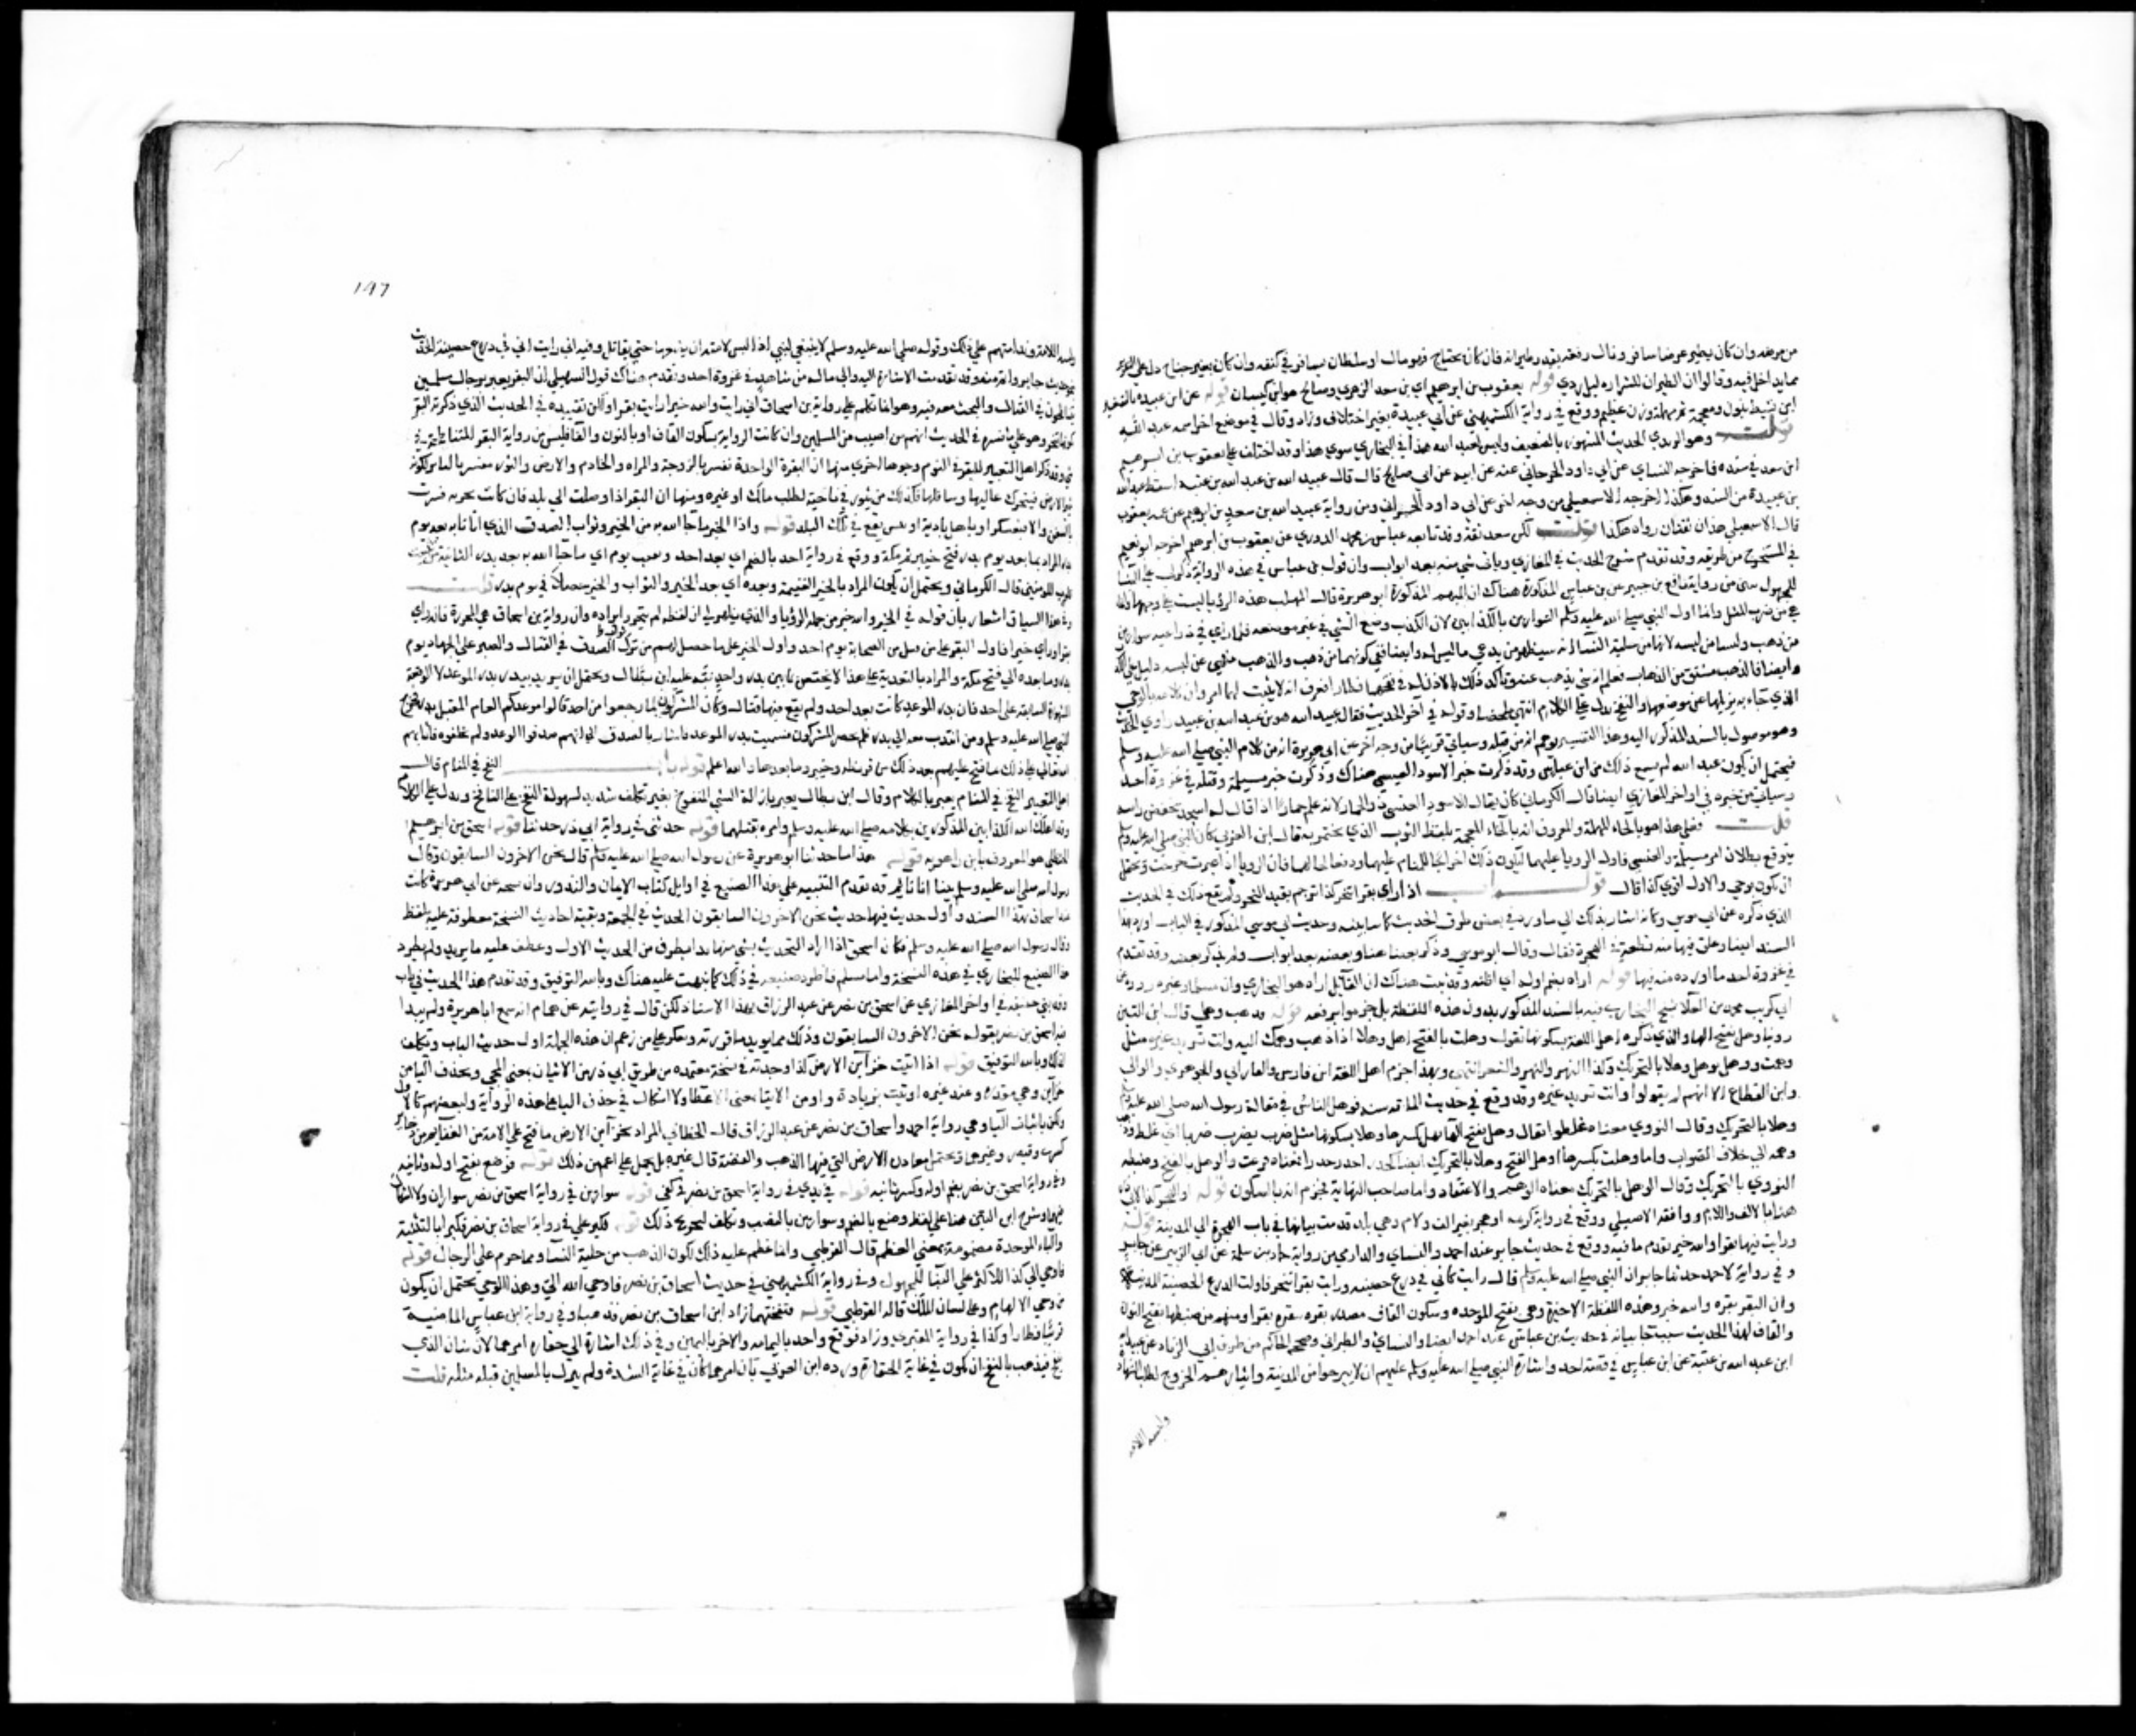 من موضعه وان كان يطير عرضا سافر ونال رفعة بقدر طيرانه فان كان بجناح فهو مال او سلطان يسافر في كنفه وان كان بغير جناح دل على التغرير
مما يدخل فيه وقالوا ان الطيران للشرار دليل ردي قوله يعقوب بن ابرهيم اي بن سعد الزهري وصالح هو ابن كيسان قوله عن ابن عبيدة بالتصغير
ابن نشيط بنون ومعجمة ثم مهملة وزن عظيم ووقع في رواية الكشميهني عن ابي عبيدة بغير اختلاف وزاد وقال في موضع اخر اسمه عبد الله
قلت وهو الربذي الحديث المشهور بالضعف وليس لعبد الله هذا في البخاري سوى هذا وقد اختلف على يعقوب بن ابرهيم
ابن سعد في سنده فاخرجه النساي عن ابي داود الحراني عنه عن ابيه عن ابي صالح قال قال عبيد الله بن عبد الله بن عتبة اسقط عبد الله
بن عبيدة من السند وهكذا اخرجه الاسمعيلي من وجه اخر عن ابي داود الحراني ومن رواية عبيد الله بن سعد بن ابرهيم عن عمه يعقوب
قال الاسمعيلي هذان ثقتان روياه هكذا قلت لكن سعد ثقة وقد تابعه عباس بن محمد الدوري عن يعقوب بن ابرهيم اخرجه ابو نعيم
في المستخرج من طريقه وقد تقدم شرح الحديث في المغازي وياتي شي منه بعد ابواب وان قول بن عباس في هذه الرواية ذكر لي على البنا
للمجهول يبين من رواية نافع بن جبير عن بن عباس المذكورة هناك ان المبهم المذكور ابو هريرة قال المهلب هذه الرويا ليست على وجهها وانما
هي من ضرب المثل وانما اول النبي صلى الله عليه وسلم السوارين بالكذابين لان الكذب وضع الشي في غير موضعه فلما راى في ذراعيه سوارين
من ذهب وليسا من لبسه لانهما من حلية النسا عرف انه سيظهر من يدعي ما ليس له وايضا ففي كونهما من ذهب والذهب منهي عن لبسه دليل على الكذب
وايضا فالذهب مشتق من الذهاب فعلم انه شي يذهب عنه وتاكد ذلك بالاذن له في نفخهما فطارا فعرف انه لا يثبت لهما امر وان كلامه بالوحي
الذي جاء به يزيلهما عن موضعهما والنفخ يدل على الكلام انتهى ملخصا وقوله في اخر الحديث فقال عبيد الله هو بن عبد الله بن عتبة راوي الحديث
وهو موصول بالسند المذكور اليه وهذا التفسير يوهم انه من قبله وسياتي قريبا من وجه اخر عن ابي هريرة انه من كلام النبي صلى الله عليه وسلم
فيحتمل ان يكون عبيد الله لم يسمع ذلك من ابن عباس وقد ذكرت خبر الاسود العنسي هناك وذكرت خبر مسيلمة وقتله في غزوة احد
وسياتي من خبره في اواخر المغازي ايضا قال الكرماني كان يقال للاسود العنسي ذو الحمار لانه علم حمارا اذا قال له اسجد يخفض راسه
قلت فعلى هذا هو بالحاء المهملة والمعروف انه بالخاء المعجمة بلفظ الثوب الذي يختمر به قال ابن العربي كان النبي صلى الله عليه وسلم
يتوقع بطلان امر مسيلمة والعنسي فاول الرويا عليهما ليكون ذلك اخراجا للمنام عليهما ودفعا لحالهما فان الرويا اذا عبرت خرجت ويحتمل
ان يكون بوحي والاول اقوى كذا قال قوله باب اذا راى بقرا تنحر كذا ترجم بقيد النحر ولم يقع ذلك في الحديث
الذي ذكره عن ابي موسى وكانه اشار بذلك الى ما ورد في بعض طرق الحديث كما سابينه وحديث ابي موسى المذكور في الباب اورد بهذا
السند ايضا وعلق فيها منه قطعة في الهجرة فقال وقال ابو موسى وذكر بعضا هنا وبعضه بعد ابواب ولم يذكر بعضه وقد تقدم
في غزوة احد ما اورده منه فيها قوله اراه بضم اوله اي اظنه وقد بينت هناك ان القائل اراه هو البخاري وان مسلما وغيره رووه عن
ابي كريب محمد بن العلا شيخ البخاري فيه بالسند المذكور بدون هذه اللفظة بل جزموا برفعه قوله فذهب وهلي قال ابن التين
رويناه وهل بفتح الها والذي ذكره اهل اللغة بسكونها تقول وهلت بالفتح اهل وهلا اذا ذهب وهمك اليه وانت تريد غيره مثل
وهمت ووهل يوهل وهلا بالتحريك وكذا النهر والنهر والشعر انتهى وبهذا جزم اهل اللغة ابن فارس والفارابي والجوهري والقالي
وابن القطاع الا انهم لم يقولوا وانت تريد غيره وقد وقع في حديث المائة سنة فوهل الناس في مقالة رسول الله صلى الله عليه وسلم
وهلا بالتحريك وقال النووي معناه غلطوا يقال وهل بفتح الها يهل بكسرها وهلا بسكونها مثل ضرب يضرب ضربا اي غلط وذهب
وهمه الى خلاف الصواب واما وهلت بكسرها اوهل بالفتح وهلا بالتحريك ايضا كحذر احذر حذرا فمعناه فزعت والوهل بالفتح وضبطه
النووي بالتحريك وقال الوهل بالتحريك معناه الوهم والاعتقاد واما صاحب النهاية فجزم انه بالسكون قوله او الهجر كذا لابي ذر
هنا بالالف واللام ووافقه الاصيلي ووقع في رواية كريمة او هجر بغير الف ولام وهي بلد قدمت بيانها في باب الهجرة الى المدينة قوله
ورايت فيها بقرا والله خير تقدم ما فيه ووقع في حديث جابر عند احمد والنساي والدارمي من رواية حماد بن سلمة عن ابي الزبير عن جابر
وفي رواية لاحمد حدثنا جابر ان النبي صلى الله عليه وسلم قال رايت كاني في درع حصينة ورايت بقرا تنحر فاولت الدرع الحصينة المدينة
وان البقر بقر والله خير وهذه اللفظة الاخيرة وهي بفتح الموحدة وسكون القاف مصدر بقره يبقره بقرا ومنهم من ضبطها بفتح النون
والفاء ولهذا الحديث سبب جا بيانه في حديث بن عباس عند احمد ايضا والنساي والطبراني وصححه الحاكم من طريق ابي الزناد عن عبيد الله
ابن عبد الله بن عتبة عن ابن عباس في قصة احد واشارة النبي صلى الله عليه وسلم عليهم ان لا يبرحوا من المدينة وايثارهم الخروج لطلب الشهادة
ولبسه اللامة
١٩٧
ولبسه اللامة وندامتهم على ذلك وقوله صلى الله عليه وسلم لا ينبغي لنبي اذا لبس لامته ان يضعها حتى يقاتل وفيه اني رايت اني في درع حصينة الحديث
بنحو حديث جابر واتم منه وقد تقدمت الاشارة اليه والى ماله من شاهد في غزوة احد وتقدم هناك قول السهيلي ان البقر يعبر برجال مسلمين
يتناطحون في القتال والبحث معه فيه وهو انما تكلم على رواية بن اسحاق اني رايت والله خيرا رايت بقرا ولكن تقييده في الحديث الذي ذكرته البقر
بكونها تنحر وهو على ما فسره في الحديث انهم من اصيب من المسلمين وان كانت الرواية بسكون القاف او بالنون والفا فليس من رواية البقر المتناطحة في
شي وقد ذكر اهل التعبير للبقر في النوم وجوها اخرى منها ان البقرة الواحدة تفسر بالزوجة والمراه والخادم والارض والثور يفسر بالثائر لكونه
يثير الارض فيتحرك عاليها وسافلها فكذلك من يثور في ناحية لطلب ملك او غيره ومنها ان البقر اذا وصلت الى بلد فان كانت بحرية فسرت
بالسفن والا فبعسكر او باهل بادية او يبس يقع في تلك البلد قوله واذا الخير ما جا الله به من الخير وثواب الصدق الذي اتانا به بعد يوم
بدر المراد بما بعد يوم بدر فتح خيبر ثم مكة ووقع في رواية احد بالضم اي بعد احد ونصب يوم اي ما جا الله به بعد بدر الثانية من تثبيت
قلوب المومنين قال الكرماني ويحتمل ان يكون المراد بالخير الغنيمة وبعده اي بعد الخير والثواب والخير حصلا في يوم بدر قلت
وفي هذا السياق اشعار بان قوله في الخير والله خير من جملة الرؤيا والذي يظهر لي ان لفظه لم يتحرر ايراده وان رواية بن اسحاق هي المحررة فانه راى
بقرا وراى خيرا فاول البقر على من قتل من الصحابة يوم احد واول الخير على ما حصل لهم من ثواب الصدق في القتال والصبر على الجهاد يوم
بدر وما بعده الى فتح مكة والمراد بالبعدية على هذا لا يختص بما بين بدر واحد نبه عليه ابن بطال ويحتمل ان يريد ببدر بدر الموعد لا الوقعة
المشهورة السابقة على احد فان بدر الموعد كانت بعد احد ولم يقع فيها قتال وكان المشركون لما رجعوا من احد قالوا موعدكم العام المقبل بدر فخرج
النبي صلى الله عليه وسلم ومن انتدب معه الى بدر فلم يحضر المشركون فسميت بدر الموعد فاشار بالصدق الى انهم صدقوا الوعد ولم يخلفوه فاثابهم
الله تعالى على ذلك بما فتح عليهم بعد ذلك من قريظة وخيبر وما بعدها والله اعلم قوله باب النفخ في المنام قال
اهل التعبير النفخ في المنام يعبر بالكلام وقال ابن بطال يعبر بازالة الشي المنفوخ بغير تكلف شديد لسهولة النفخ على النافخ ويدل على الكلام
وقد اهلك الله الكذابين المذكورين بكلامه صلى الله عليه وسلم وامره بقتلهما قوله حدثني في رواية ابي ذر حدثنا قوله اسحق بن ابرهيم
الحنظلي هو المعروف بابن راهويه قوله هذا ما حدثنا ابو هريرة عن رسول الله صلى الله عليه وسلم قال نحن الاخرون السابقون وقال
رسول الله صلى الله عليه وسلم بينا انا نائم قد تقدم التنبيه على هذا الصنيع في اوايل كتاب الايمان والنذور وان نسخة عن ابي هريرة كانت
عند اسحاق بهذا السند واول حديث فيها حديث نحن الاخرون السابقون الحديث في الجمعة وبقية احاديث النسخة معطوفة عليه بلفظ
وقال رسول الله صلى الله عليه وسلم فكان اسحق اذا اراد التحديث بشي منها بدا بطرف من الحديث الاول وعطف عليه ما يريد ولم يطرد
هذا الصنيع للبخاري في هذه النسخة واما مسلم فاطرد صنيعه في ذلك كما نبهت عليه هناك وبالله التوفيق وقد تقدم هذا الحديث في باب
وفد بني حنيفة في اواخر المغازي عن اسحق بن نصر عن عبد الرزاق بهذا الاسناد لكن قال في روايته عن همام انه سمع ابا هريرة ولم يبدا
فيه اسحق بن نصر بقوله نحن الاخرون السابقون وذلك مما يؤيد ما قررته ويعكر على من زعم ان هذه الجملة اول حديث الباب وتكلف
لذلك وبالله التوفيق قوله اذا اتيت خزآين الارض كذا وجدته في نسخة معتمدة من طريق ابي ذر من الاتيان بمعنى المجي وبحذف اليا من
خزآين وهي مقدرة وعند غيره اوتيت بزيادة واو من الايتا بمعنى الاعطا ولا اشكال في حذف اليا على هذه الرواية ولبعضهم كالاول
ولكن باثبات اليا وهي رواية احمد واسحاق بن نصر عن عبد الرزاق قال الخطابي المراد بخزآين الارض ما فتح على الامة من الغنائم من ذخاير
كسرى وقيصر وغيرهما ويحتمل معادن الارض التي فيها الذهب والفضة قال غيره بل يحمل على اعم من ذلك قوله فوضع بفتح اوله وثانيه
وفي رواية اسحق بن نصر بضم اوله وكسر ثانيه قوله في يدي في رواية اسحق بن نصر في كفي قوله سوارين في رواية اسحق بن نصر سواران ولا اشكال
فيها وشرح ابن التين هنا على لفظ وضع بالضم وسوارين بالنصب وتكلف لتخريج ذلك قوله فكبر علي في رواية اسحاق بن نصر فكبرا بالتثنية
والباء الموحدة مضمومة بمعنى العظم قال القرطبي وانما عظم عليه ذلك لكون الذهب من حلية النسآ ومما حرم على الرجال قوله
فاوحي الي كذا للاكثر على البنا للمجهول وفي رواية الكشميهني في حديث اسحاق بن نصر فاوحى الله الي وهذا الوحي يحتمل ان يكون
من وحي الالهام وعلى لسان الملك قاله القرطبي قوله فنفختهما زاد ابن اسحاق بن نصر فذهبا وفي رواية ابن عباس الماضية
قريبا فطارا وكذا في رواية المقبري وزاد فوقع واحد باليمامة والاخر باليمن وفي ذلك اشارة الى حقارة امرهما لان شان الذي
ينفخ فيذهب بالنفخ ان يكون في غاية الحقارة ورده ابن العربي بان امرهما كان في غاية الشدة ولم ينزل بالمسلمين قبله مثله قلت